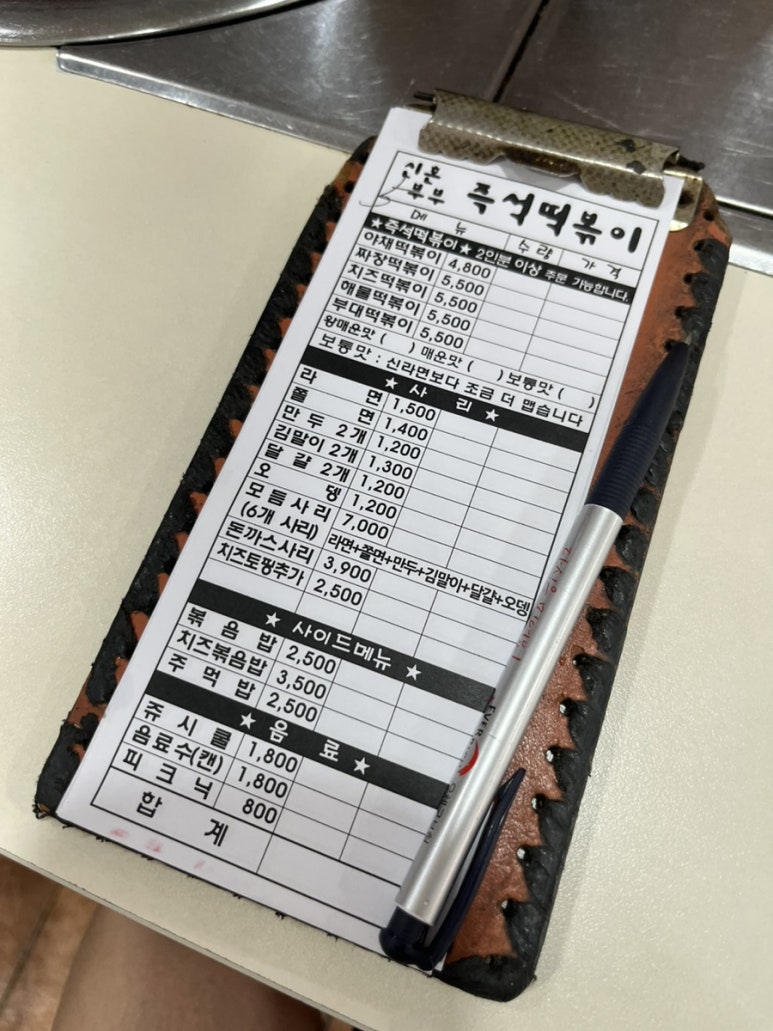 신혼
부부 즉석떡볶이
메 뉴 수 량 가 격
★즉석떡볶이★ 2인분 이상 주문 가능합니다.
야채떡볶이 4,800
짜장떡볶이 5,500
치즈떡볶이 5,500
해물떡볶이 5,500
부대떡볶이 5,500
왕매운맛 ( ) 매운맛 ( ) 보통맛 ( )
보통맛 : 신라면보다 조금 더 맵습니다
★ 사 리 ★
라 면 1,500
쫄 면 1,400
만 두 2 개 1,200
김말이 2개 1,300
달 걀 2개 1,200
오 뎅 1,200
모 듬 사 리 7,000
(6개 사리) 라면+쫄면+만두+김말이+달걀+오뎅
돈까스사리 3,900
치즈토핑추가 2,500
★ 사이드메뉴 ★
볶 음 밥 2,500
치즈볶음밥 3,500
주 먹 밥 2,500
★ 음 료 ★
쥬 시 쿨 1,800
음료수(캔) 1,800
피 크 닉 800
합 계